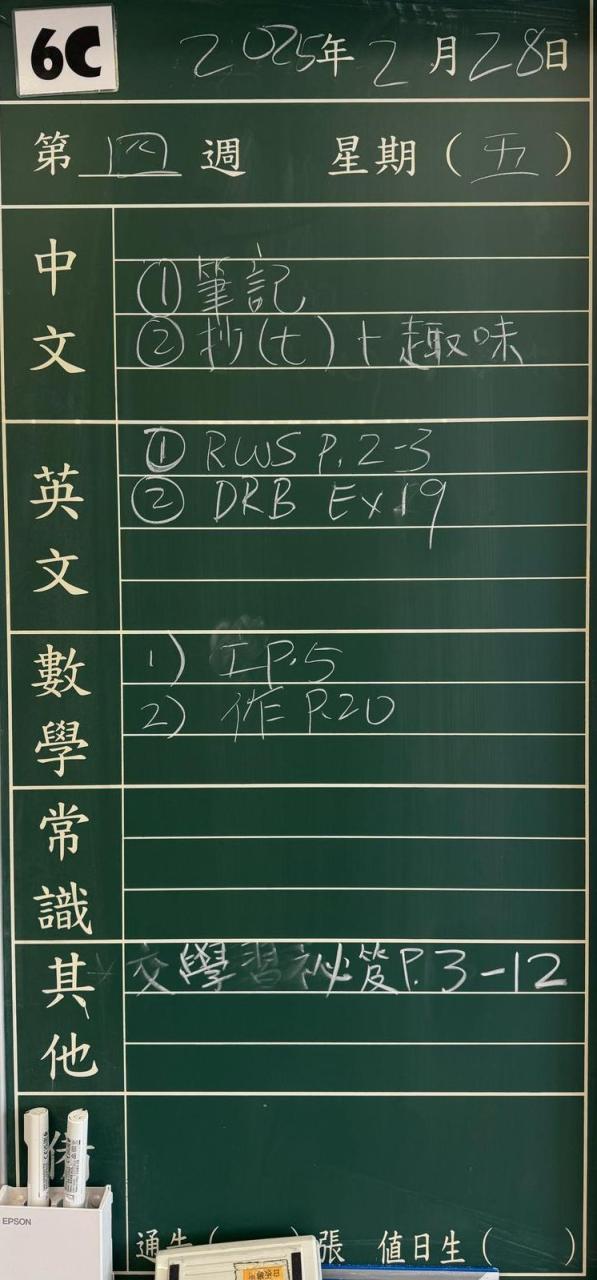 6C 2025年2月28日
第四週 星期(五)
中文
① 筆記
② 抄(七)+趣味
英文
① RWS P.2-3
② DRB Ex19
數學
1) 工P.5
2) 作P.20
常識
其他
交學習祕笈P.3-12
EPSON
通告( )張 值日生( )